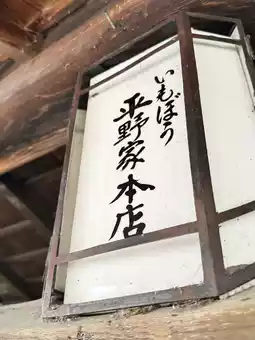 いもぼう
平野家本店